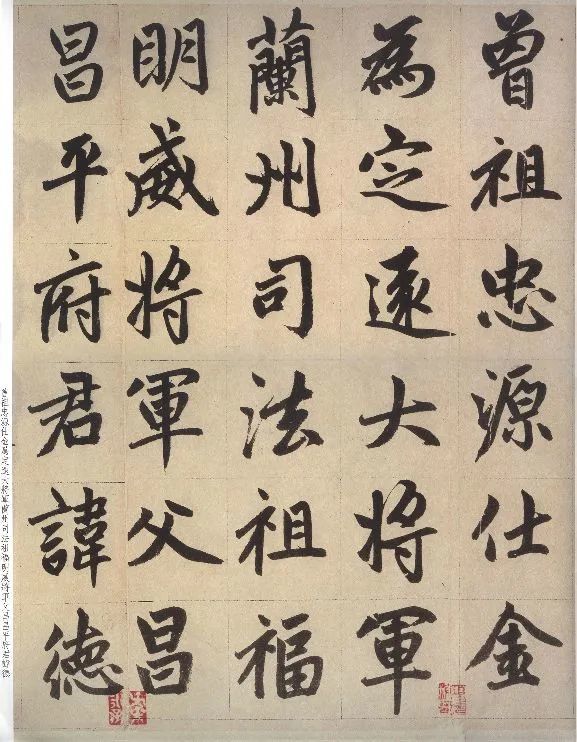 曾祖忠源仕金
為定遠大將軍
蘭州司法祖福
明威將軍父昌
昌平府君諱德
曾祖忠源仕金為定遠大將軍蘭州司法祖福明威將軍父昌昌平府君諱德